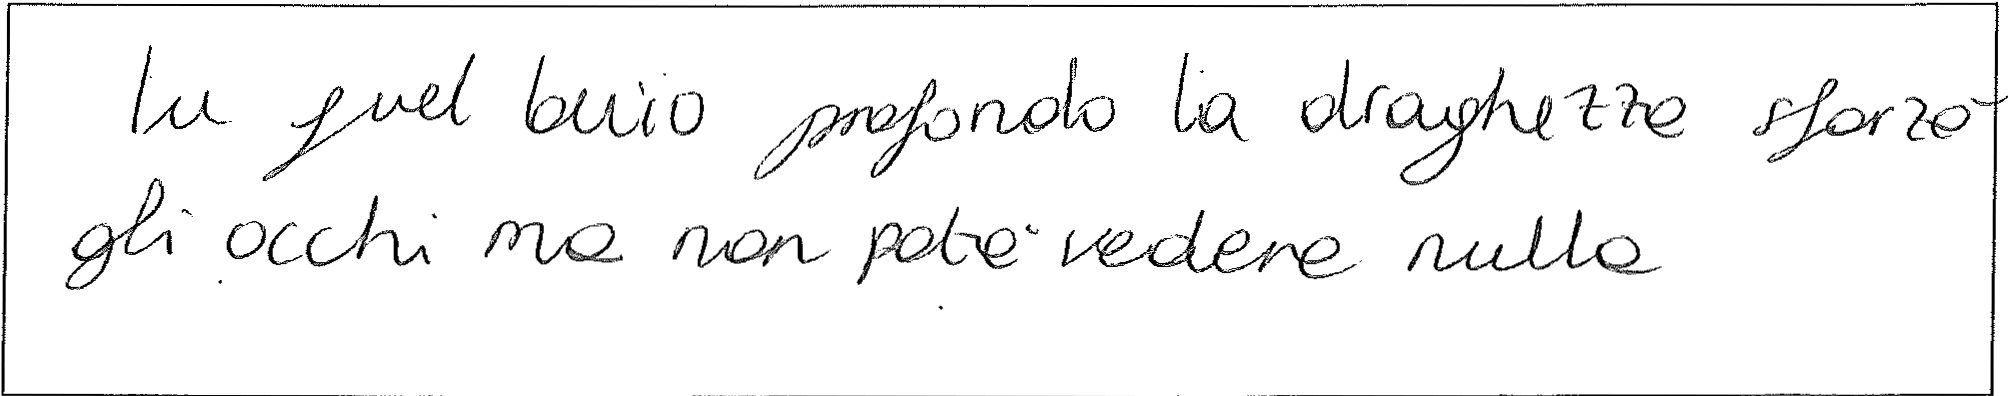 In quel buio profondo la draghezza sforzò
gli occhi ma non poté vedere nulla